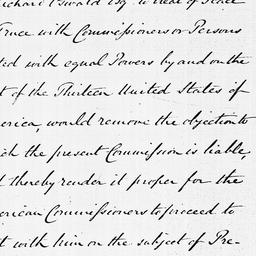 ichard Oswald Esq. to treat of Peace
Truce with Commissioners or Persons
ted with equal Powers by and on the
t of the Thirteen United States of
erica, would remove the objection to
ich the present Commission is liable,
d thereby render it proper for the
erican Commissioners to proceed to
t with him on the subject of Pre-